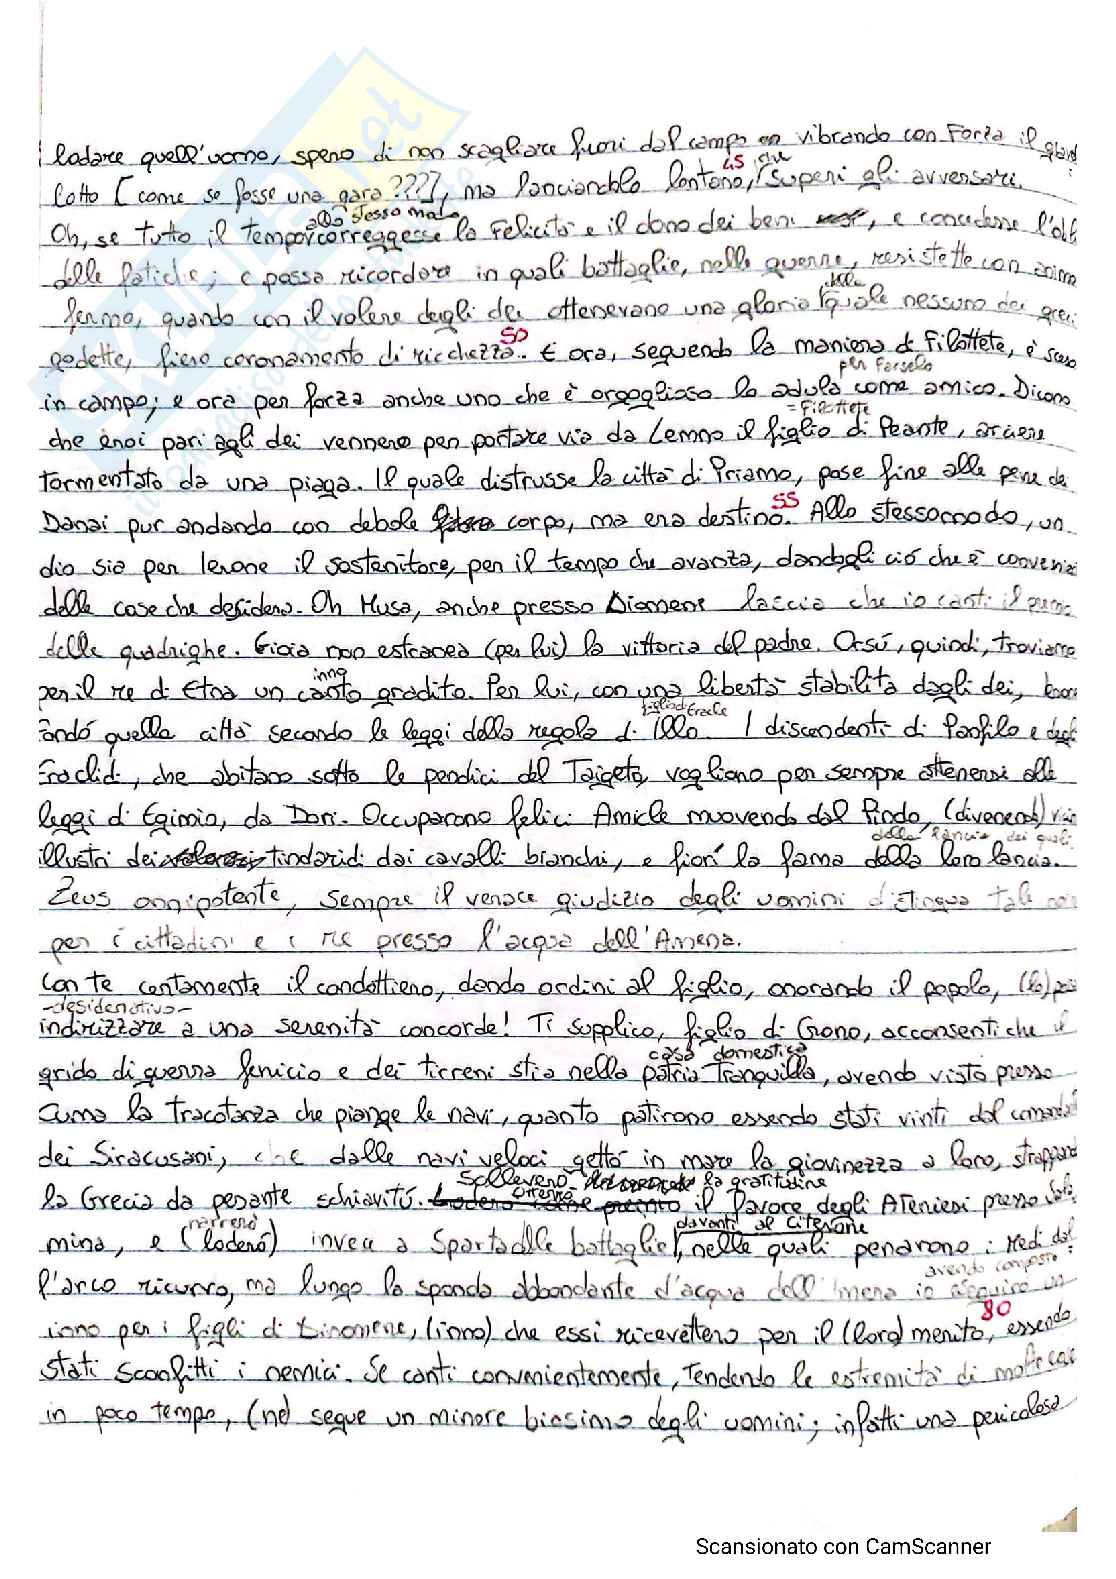 lodare quell'uomo, spero di non scagliare fuori dal campo vibrando con Forza il
lotto [come se fosse una gara???], ma lanciandolo lontano, 45 che superi gli avversari.
Oh, se tutto il tempo allo stesso modo corregesse la Felicità e il dono dei beni, e concedesse l'obl
delle fatiche; e possa ricordare in quali battaglie, nelle guerre, resistette con animo
fermo, quando con il volere degli dei ottenevano una gloria della quale nessuno dei greci
godette, fiero coronamento di ricchezza. 50 E ora, seguendo la maniera di Filottete, è sceso
in campo; e ora per forza anche uno che è orgoglioso lo adula come per farselo amico. Dicono
che eroi pari agli dei vennero per portare via da Lemno il figlio di Peante, = Filottete arciere
tormentato da una piaga. Il quale distrusse la città di Priamo, pose fine alle pene de
Danai pur andando con debole corpo, ma era destino. 55 Allo stesso modo, un
dio sia per Ierone il sostenitore, per il tempo che avanza, dandogli ciò che è
delle cose che desidera. Oh Musa, anche presso Diomene lascia che io canti il
delle quadrighe. Gioia non estranea (per lui) la vittoria del padre. Orsú, quindi, troviamo
per il re di Etna un canto inno gradito. Per lui, con una libertà stabilita dagli dei,
fondó quella città secondo le leggi della regola di Illo. figlio di Eracle I discendenti di Panfilo e degli
Eraclidi, che abitano sotto le pendici del Taigeto, vogliono per sempre attenersi alle
leggi di Egimio, da Dori. Occuparono felici Amicle muovendo dal Pindo, (divenendo) vici
illustri dei tindaridi dai cavalli bianchi, e fiorí la fama della loro lancia. della lancia dei quali
Zeus onnipotente, sempre il verace giudizio degli uomini distingua tale
per i cittadini e i re presso l'acqua dell'Amena.
Con te certamente il condottiero, dando ordini al figlio, onorando il popolo, (lo)
-desiderativo- indirizzare a una serenità concorde! Ti supplico, figlio di Crono, acconsenti che il
grido di guerra fenicio e dei tirreni stia nella patria casa domestica tranquilla, avendo visto presso
Cuma la tracotanza che piange le navi, quanto patirono essendo stati vinti dal
dei Siracusani, che dalle navi veloci gettó in mare la giovinezza a loro, strappando
la Grecia da pesante schiavitú. Solleverò otterrò la gratitudine il favore degli Ateniesi presso Sala
mina, e (loderó) narreró invece a Sparta delle battaglie davanti al Citerone, nelle quali penarono i Medi dal
l'arco ricurvo, ma lungo la sponda abbondante d'acqua dell'Imera avendo composto un
inno per i figli di Dinomene, (inno) che essi ricevettero per il (loro) merito, 80 essendo
stati sconfitti i nemici. Se canti convenientemente, tendendo le estremità di molte cose
in poco tempo, (ne) segue un minore biasimo degli uomini; infatti una pericolosa
Scansionato con CamScanner